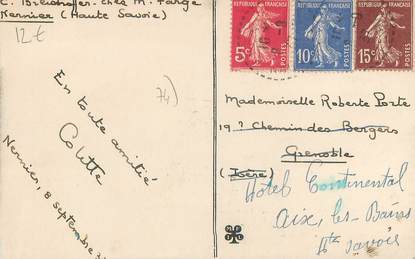 chez M. Farge
Nernier (Haute Savoie)
12€
74)
En toute amitié
Colette
Nernier, 8 septembre
RÉPUBLIQUE FRANÇAISE
5c
POSTES
RÉPUBLIQUE FRANÇAISE
10c
POSTES
RÉPUBLIQUE FRANÇAISE
15c
POSTES
Mademoiselle Roberte Porte
19 Chemin des Bergers
Grenoble
(Isère)
Hôtel Continental
Aix les Bains
Hte Savoie